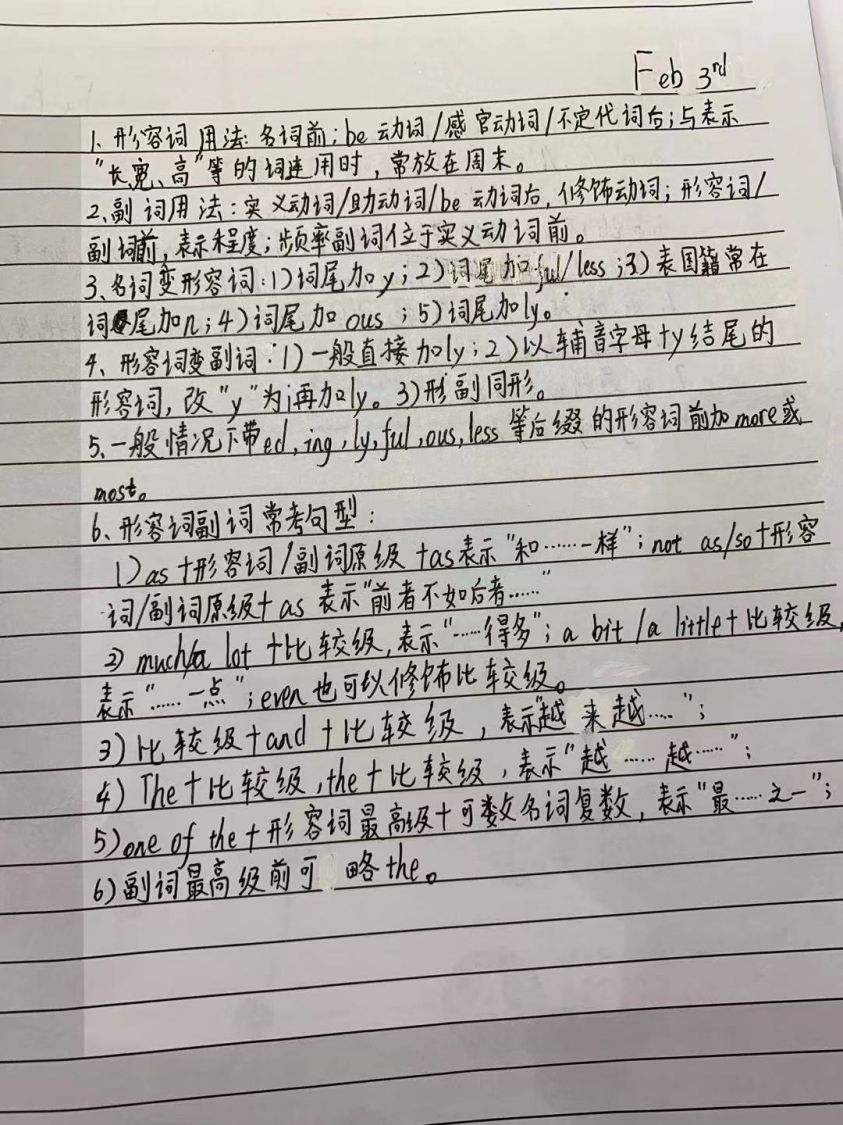 Feb 3rd
1、形容词用法:名词前;be 动词/感官动词/不定代词后;与表示
"长、宽、高"等的词连用时,常放在周末。
2、副词用法:实义动词/助动词/be 动词后,修饰动词;形容词/
副词前,表示程度;频率副词位于实义动词前。
3、名词变形容词:1)词尾加y;2)词尾加ful/less;3)表国籍常在
词尾加n;4)词尾加ous;5)词尾加ly。
4、形容词变副词:1)一般直接加ly;2)以辅音字母+y结尾的
形容词,改"y"为i再加ly。3)形副同形。
5、一般情况下带ed,ing,ly,ful,ous,less等后缀的形容词前加more或
most。
6、形容词副词常考句型:
1)as+形容词/副词原级+as表示"和……一样";not as/so+形容
词/副词原级+as 表示"前者不如后者……"
2)much/a lot+比较级,表示"……得多";a bit/a little+比较级,
表示"……一点";even也可以修饰比较级。
3)比较级+and+比较级,表示"越来越……";
4)The+比较级,the+比较级,表示"越……越……";
5)one of the+形容词最高级+可数名词复数,表示"最……之一";
6)副词最高级前可 略the。